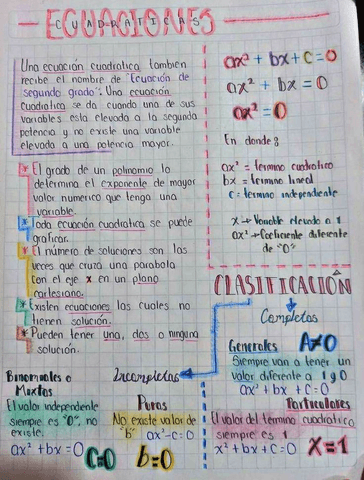 ECUACIONES
CUADRATICAS
Una ecuación cuadratica tambien
recibe el nombre de "Ecuación de
segundo grado". Una ecuación
cuadratica se da cuando una de sus
variables esta elevada a la segunda
potencia y no existe una variable
elevada a una potencia mayor.
* El grado de un polinomio lo
determina el exponente de mayor
valor numerico que tenga una
variable.
* Toda ecuación cuadratica se puede
graficar.
* El número de soluciones son las
veces que cruza una parabola
con el eje x en un plano
cartesiano.
* Existen ecuaciones las cuales no
tienen solución.
* Pueden tener una, dos o ninguna
solución.
ax² + bx + c = 0
ax² + bx = 0
ax² = 0
En donde:
ax² = termino cuadratico
bx = termino lineal
c = termino independiente
x → Variable elevado a 1
ax² → Coeficiente diferente
de "0"
CLASIFICACIÓN
Completas
Generales A≠0
Siempre van a tener un
valor diferente a 1 y 0
ax² + bx + c = 0
Particulares
El valor del término cuadratico
siempre es 1
x² + bx + c = 0 X=1
Incompletas
Binomiales o
Mixtas
El valor independiente
siempre es "0", no
existe.
ax² + bx = 0 C=0
Puras
No existe valor de
"b" ax²-c=0
b=0